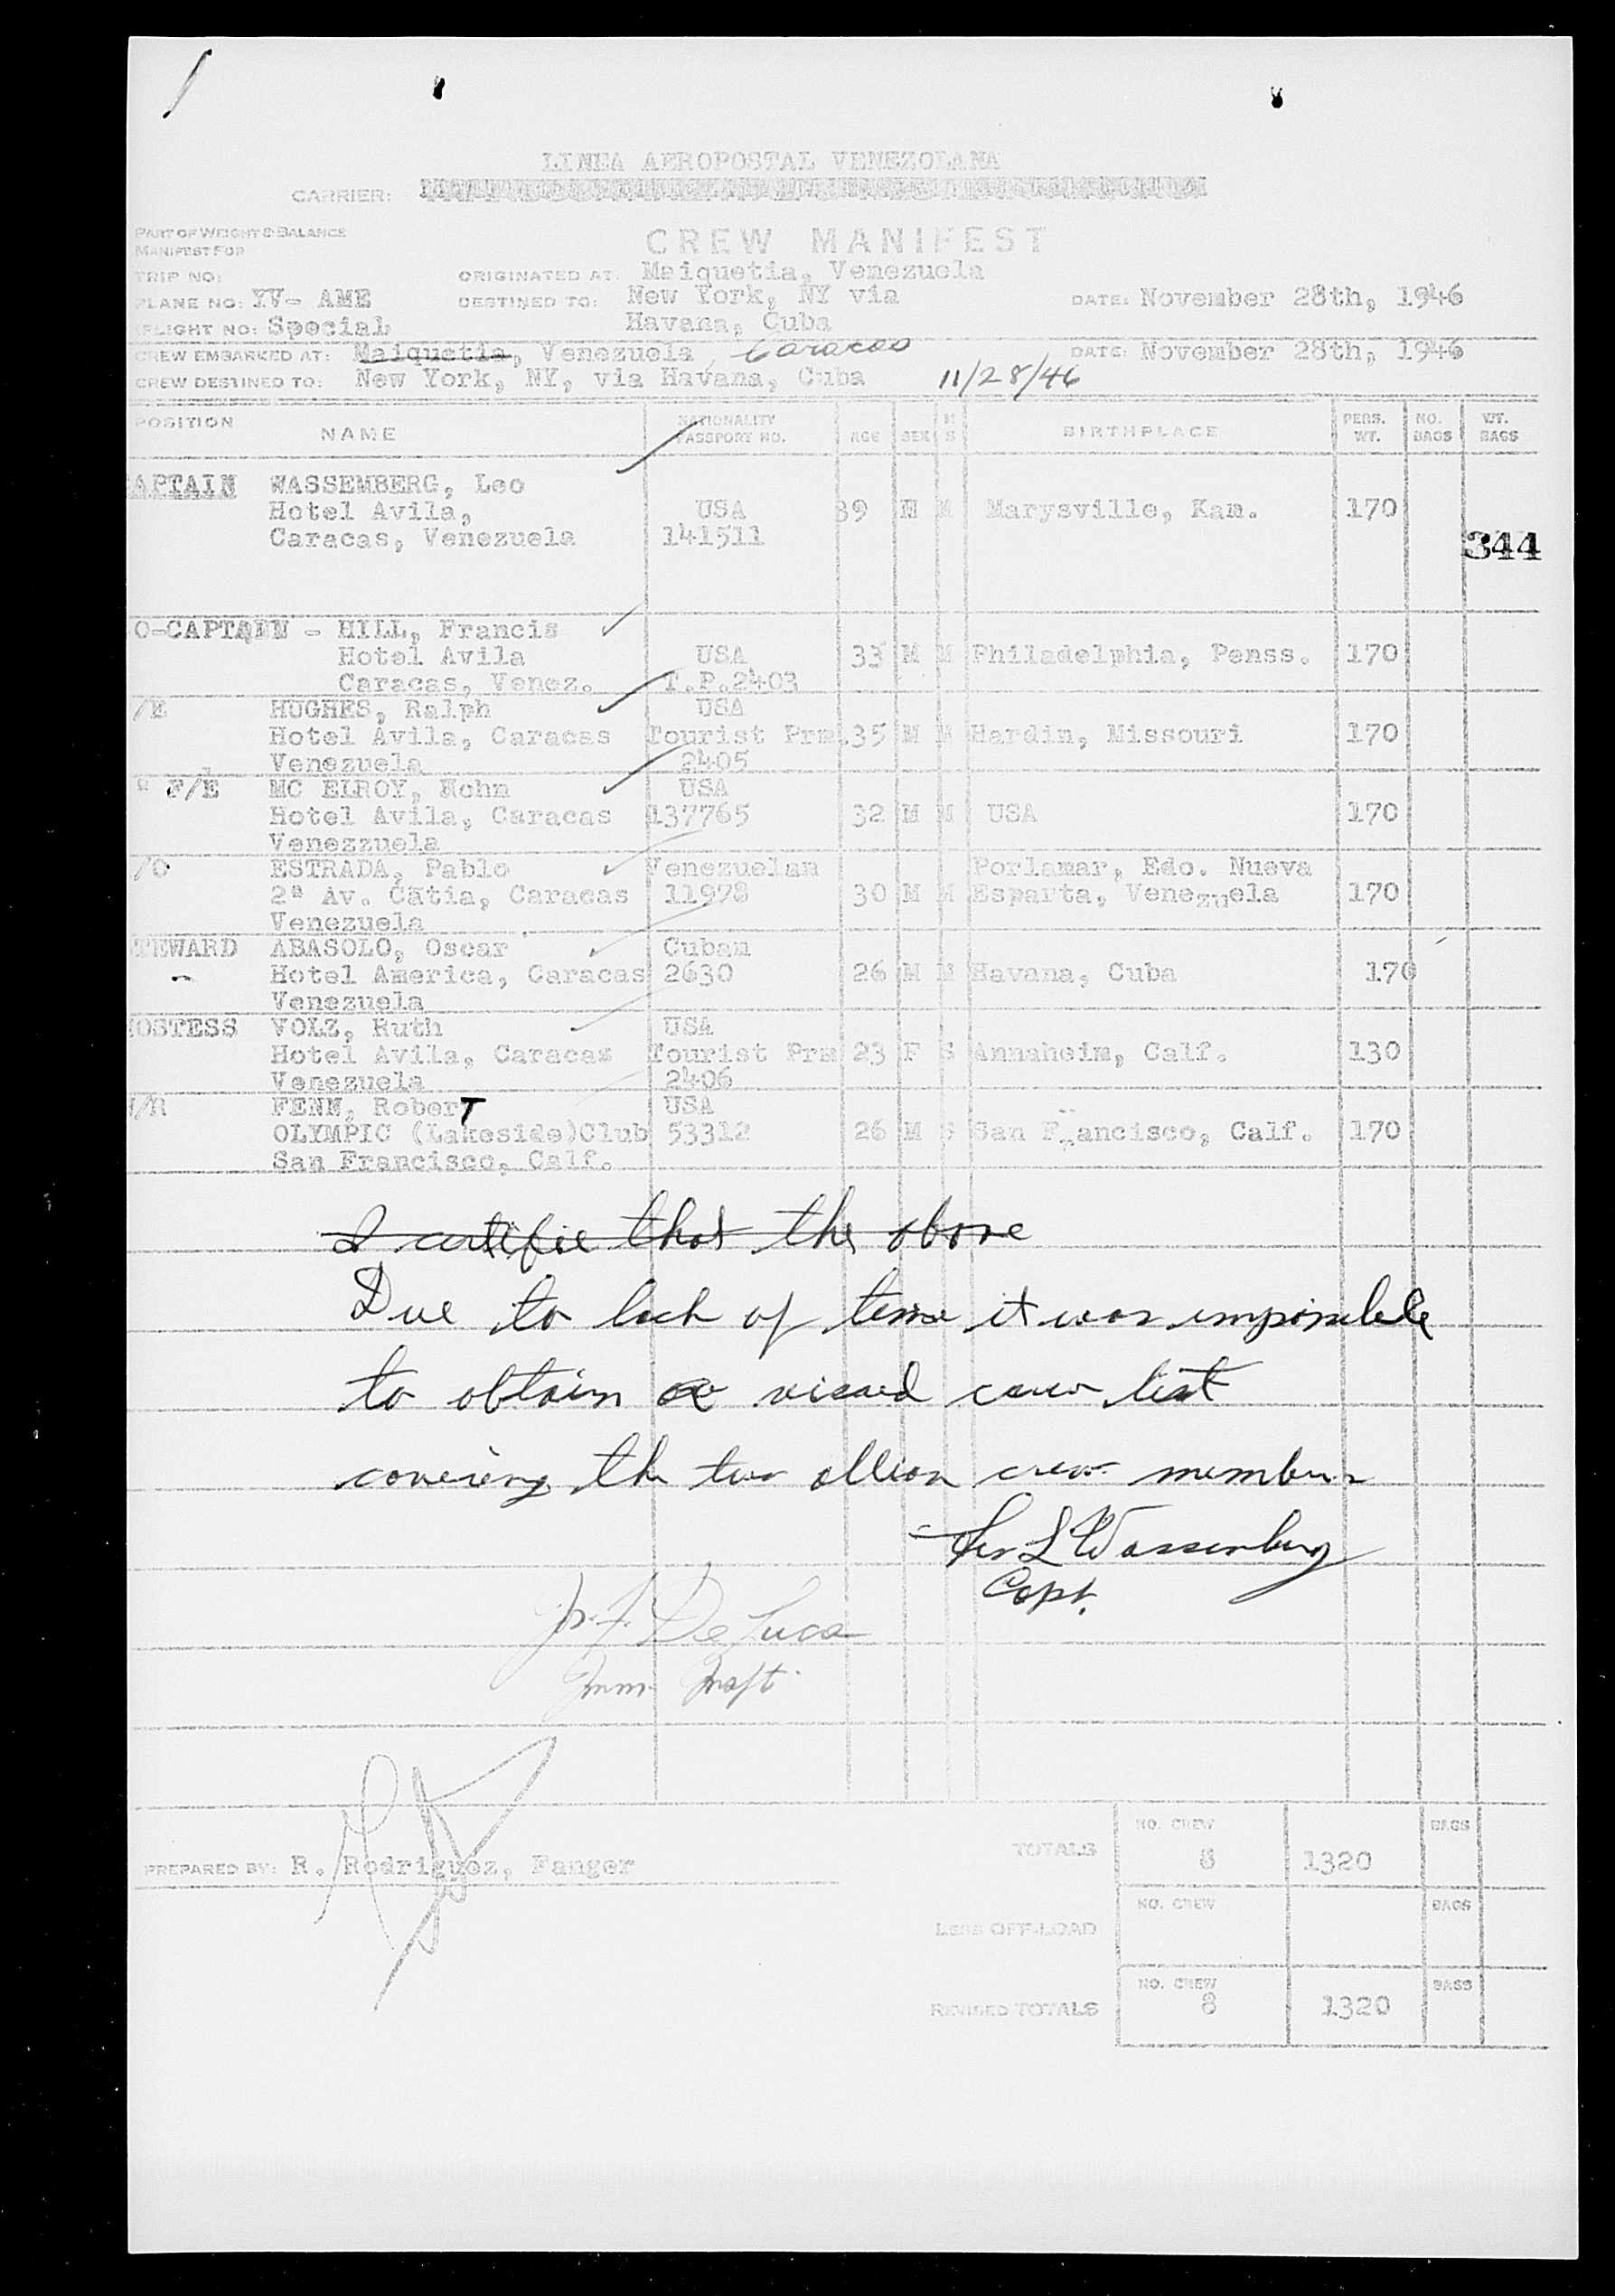 LINEA AEROPOSTAL VENEZOLANA
CARRIER:
PART OF WEIGHT & BALANCE
MANIFEST FOR
CREW MANIFEST
TRIP NO:
ORIGINATED AT: Maiquetia, Venezuela
PLANE NO: YV- AME
DESTINED TO: New York, NY via
DATE: November 28th, 1946
FLIGHT NO: Special
Havana, Cuba
CREW EMBARKED AT: Maiquetia, Venezuela, Caracas
DATE: November 28th, 1946
CREW DESTINED TO: New York, NY, via Havana, Cuba 11/28/46
POSITION NAME NATIONALITY PASSPORT NO. AGE SEX M S BIRTHPLACE PERS. WT. NO. BAGS WT. BAGS
APTAIN WASSEMBERG, Leo
Hotel Avila, USA 39 M M Marysville, Kan. 170
Caracas, Venezuela 141511
344
O-CAPTAIN - HILL, Francis
Hotel Avila USA 33 M M Philadelphia, Penss. 170
Caracas, Venez. T.P.2403
/E HUGHES, Ralph USA
Hotel Avila, Caracas Tourist Prm.35 M M Hardin, Missouri 170
Venezuela 2405
" F/E MC ELROY, Wohn USA
Hotel Avila, Caracas 137765 32 M M USA 170
Venezzuela
/O ESTRADA, Pablo Venezuelan Porlamar, Edo. Nueva
2ª Av. Catia, Caracas 11978 30 M M Esparta, Venezuela 170
Venezuela
TEWARD ABASOLO, Oscar Cuban
Hotel America, Caracas 2630 26 M M Havana, Cuba 170
Venezuela
HOSTESS VOLZ, Ruth USA
Hotel Avila, Caracas Tourist Prm 23 F S Annaheim, Calf. 130
Venezuela 2406
/R FENN, RoberT USA
OLYMPIC (Lakeside)Club 53312 26 M S San Francisco, Calf. 170
San Francisco, Calf.
I certifie that the above
Due to lack of time it was imposible
to obtain a visaed crew list
covering the two allien crew members
Leo L Wassenberg
Capt.
De Luca
Imm. Inspt.
PREPARED BY: R. Rodriguez, Fanger
TOTALS NO. CREW 8 1320 BAGS
LESS OFF-LOAD NO. CREW BAGS
REVISED TOTALS NO. CREW 8 1320 BAGS